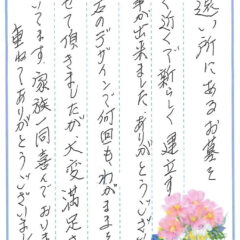 遠い所にあるお墓を
く近くで新らしく建立す
事が出来ました。ありがとうござい
石のデザインで何回もわがままを
せて頂きましたが、大変満足さ
ています。家族一同喜んでおりま
重ねてありがとうございまし